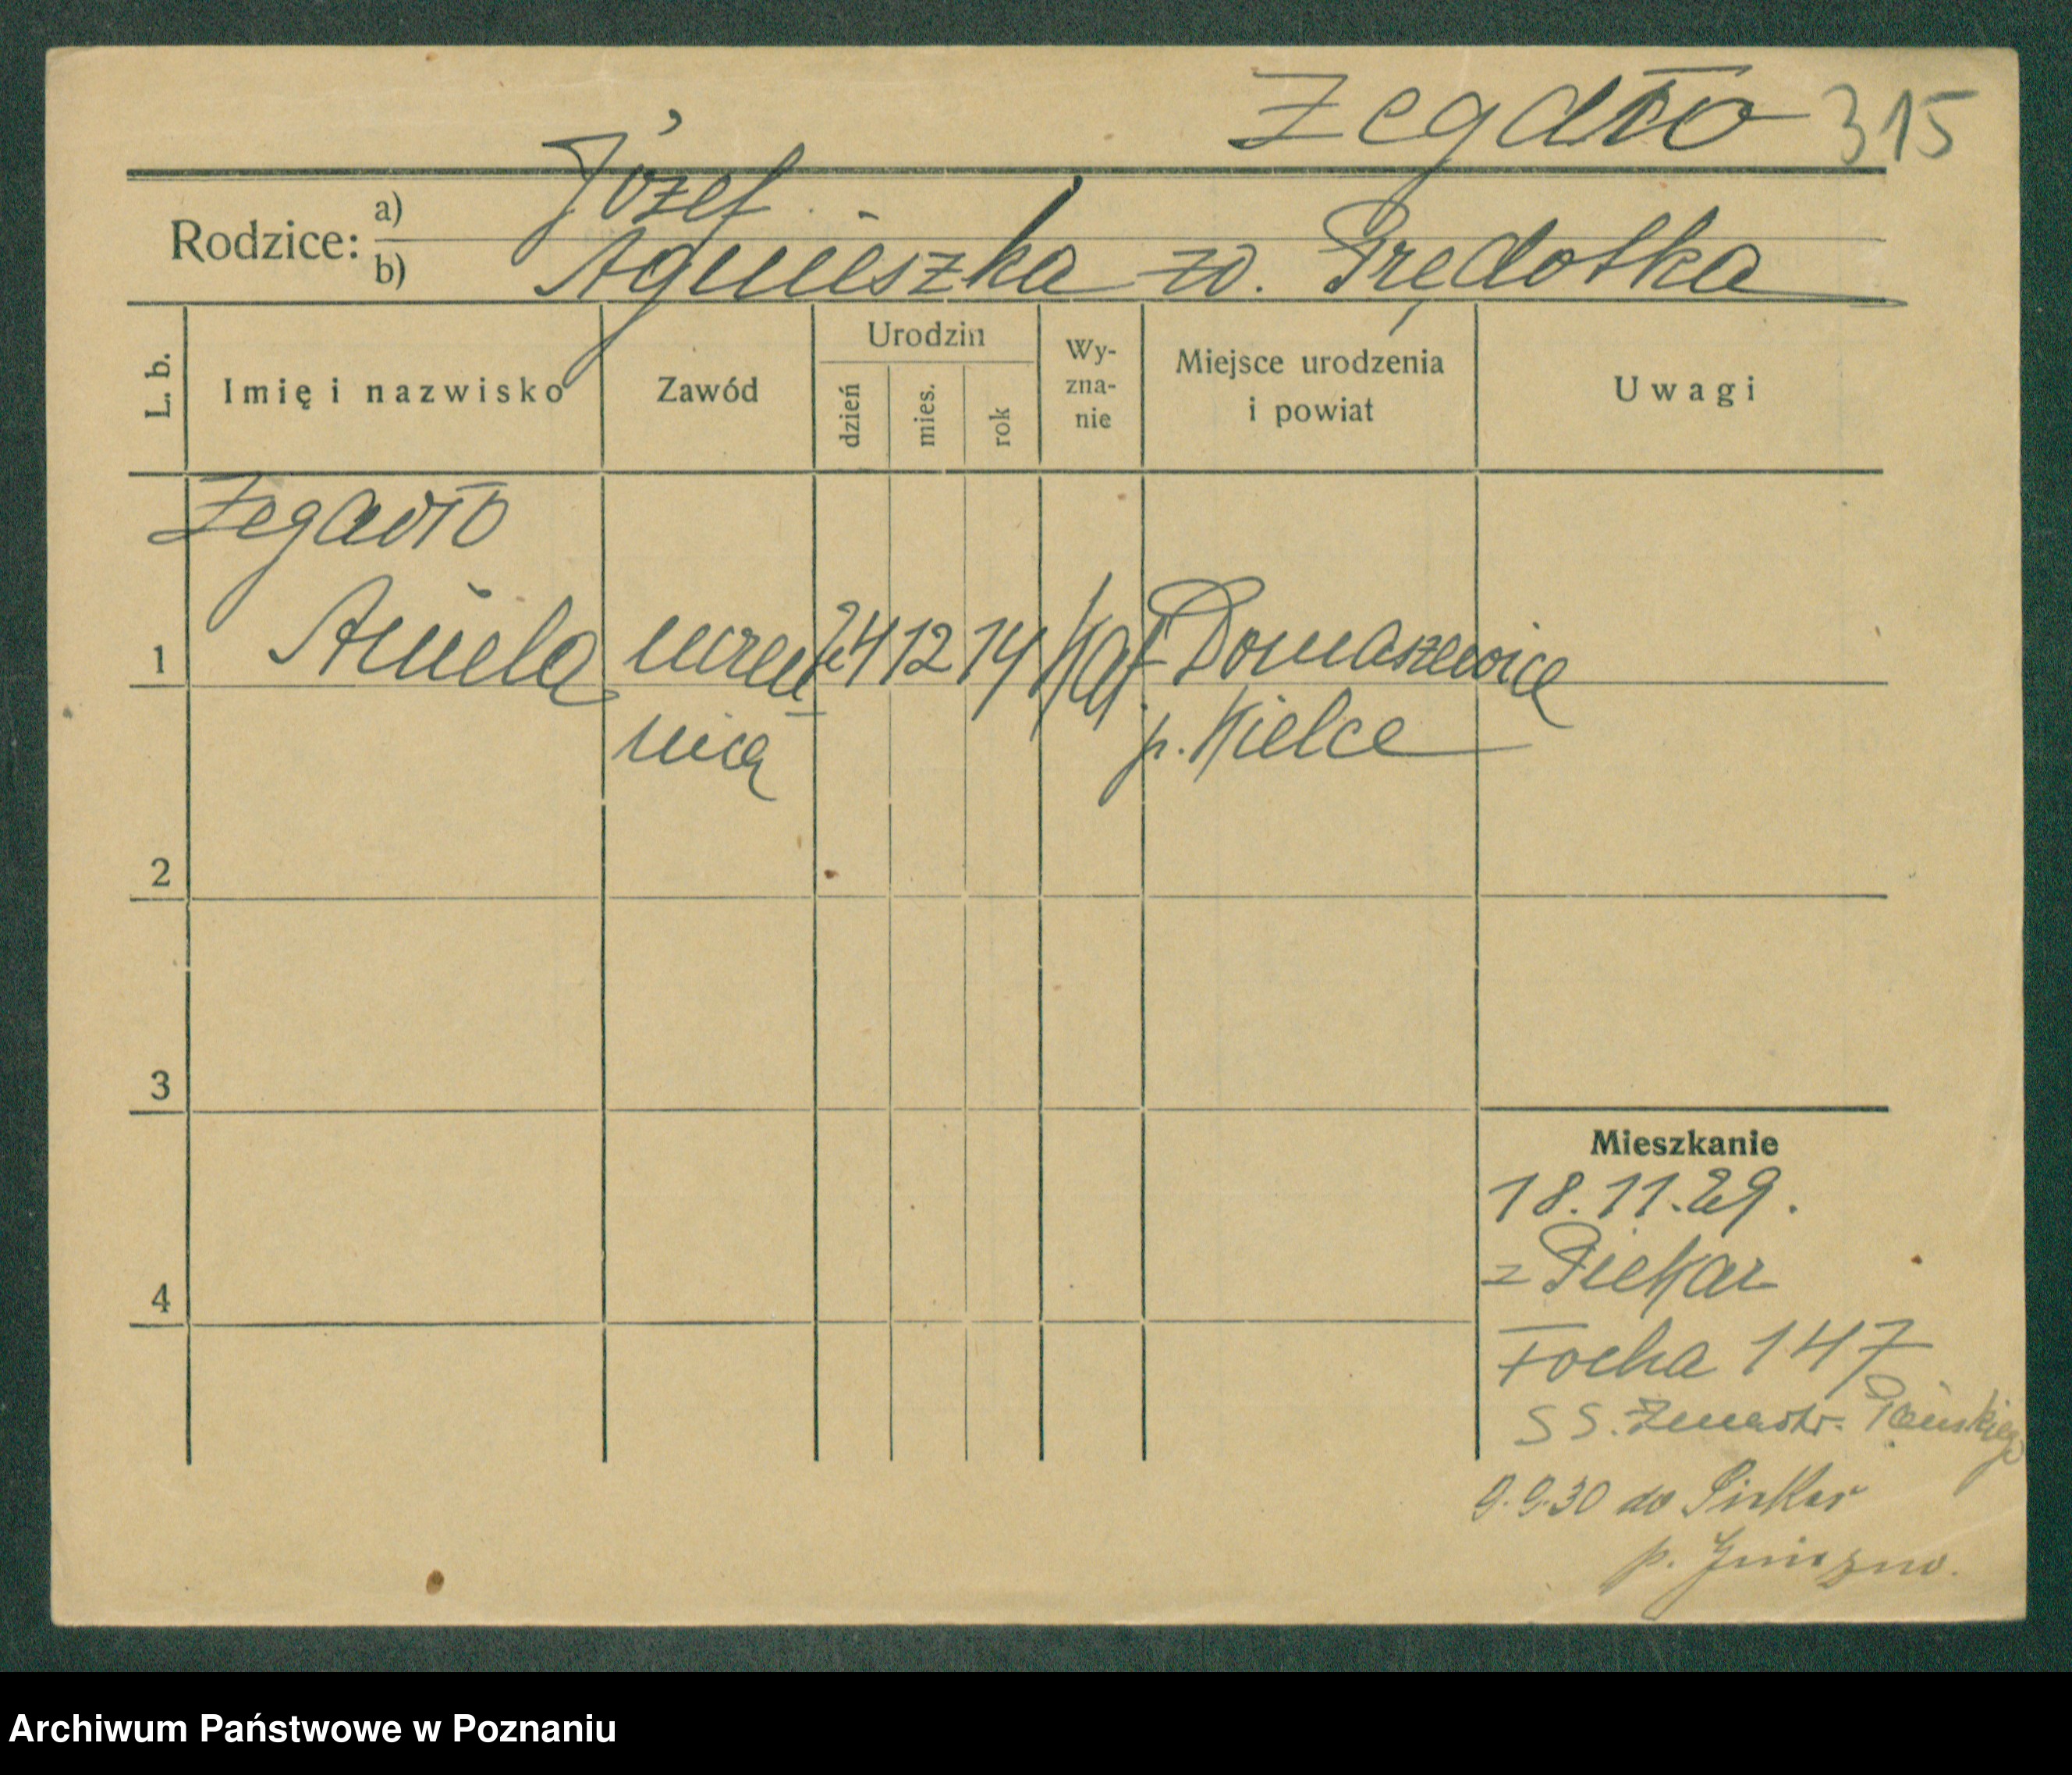 Zegadło 315
Rodzice: a) Józef
b) Agnieszka zd. Prędotka
L. b.
Imię i nazwisko
Zawód
Urodzin
dzień
mies.
rok
Wy-
zna-
nie
Miejsce urodzenia
i powiat
Uwagi
Zegadło
1 Aniela uczen 24 12 14 Kat. Domaszewice
nica p. Kielce
2
3
4
Mieszkanie
18.11.29.
z Piekar
Focha 147
SS. Zmartw. Pańskiego
9.9.30 do Piekar
p. Gniezno.
Archiwum Państwowe w Poznaniu